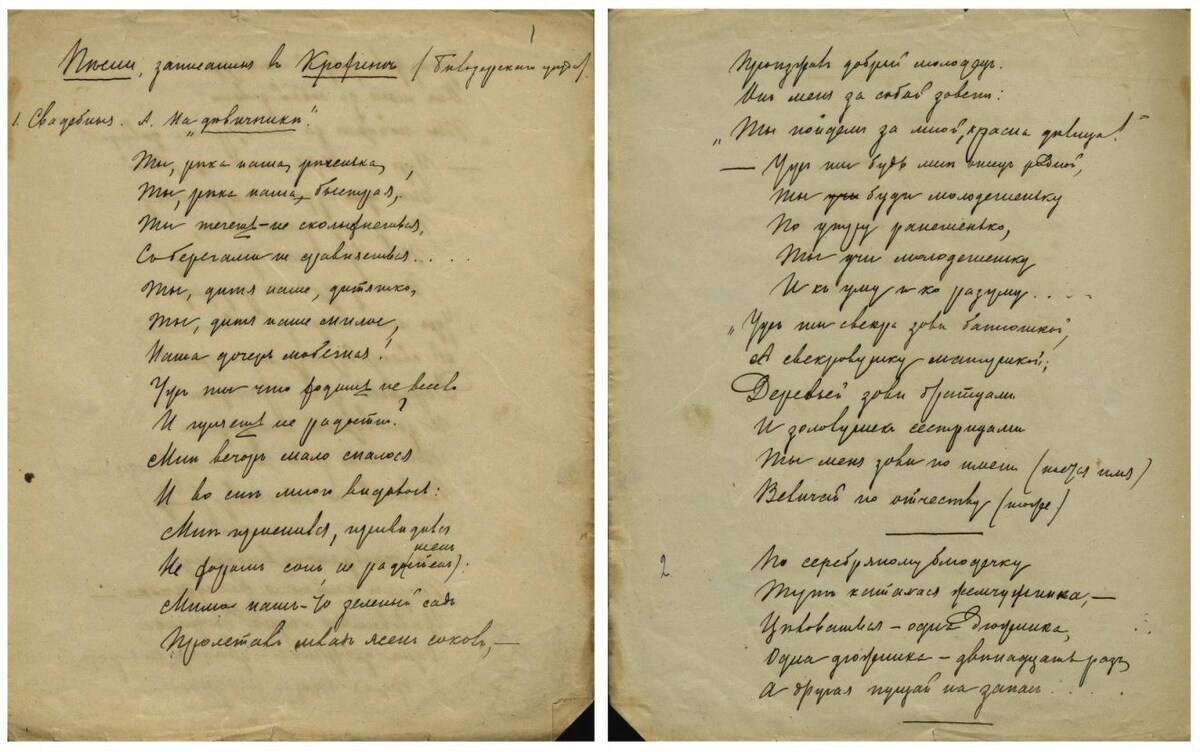 1
Пѣсни, записанныя въ Крохинѣ (Бѣлозерскаго уѣзда).
1. Свадебныя. А. На „дѣвичники“.
Ты, рѣка наша, рѣченька,
Ты, рѣка наша, быстрая,
Ты течешь – не сколыхнешься,
Со берегами не сравняешься. . . .
Ты, дитя наше, дитятко,
Ты, дитя наше милое,
Наша дочерь любезная!
Ужъ ты что ходишь не весело
И гуляешь не радостно?
Мнѣ вечоръ мало спалося
И во снѣ много видѣлося:
Мнѣ приснился, привидѣлся
Не хорошъ сонъ, не радостенъ
Мимо нашъ-то зеленый садъ
Пролеталъ младъ ясенъ соколъ, –
Проѣзжалъ добрый молодецъ.
Онъ меня за собой зоветъ:
„Ты пойдемъ за мной, красна дѣвица!“
– Ужъ ты будь мнѣ отецъ родной,
Ты учи буди молодешеньку
По утру ранешенько,
Ты учи молодешеньку
И къ уму и ко разуму. . . .
„Ужъ ты свекра зови батюшкой,
А свекровушку матушкой;
Деревьей зови братцами
И золовушекъ сестрицами
Ты меня зови по имени (имя)
Величай по отчеству (тоже)
2.
По серебряному блюдечку
Тутъ каталася жемчужинка, –
Цѣловаться – одна дюжинка,
Одна дюжинка – двѣнадцать разъ,
А другая пущай на запасъ . . .